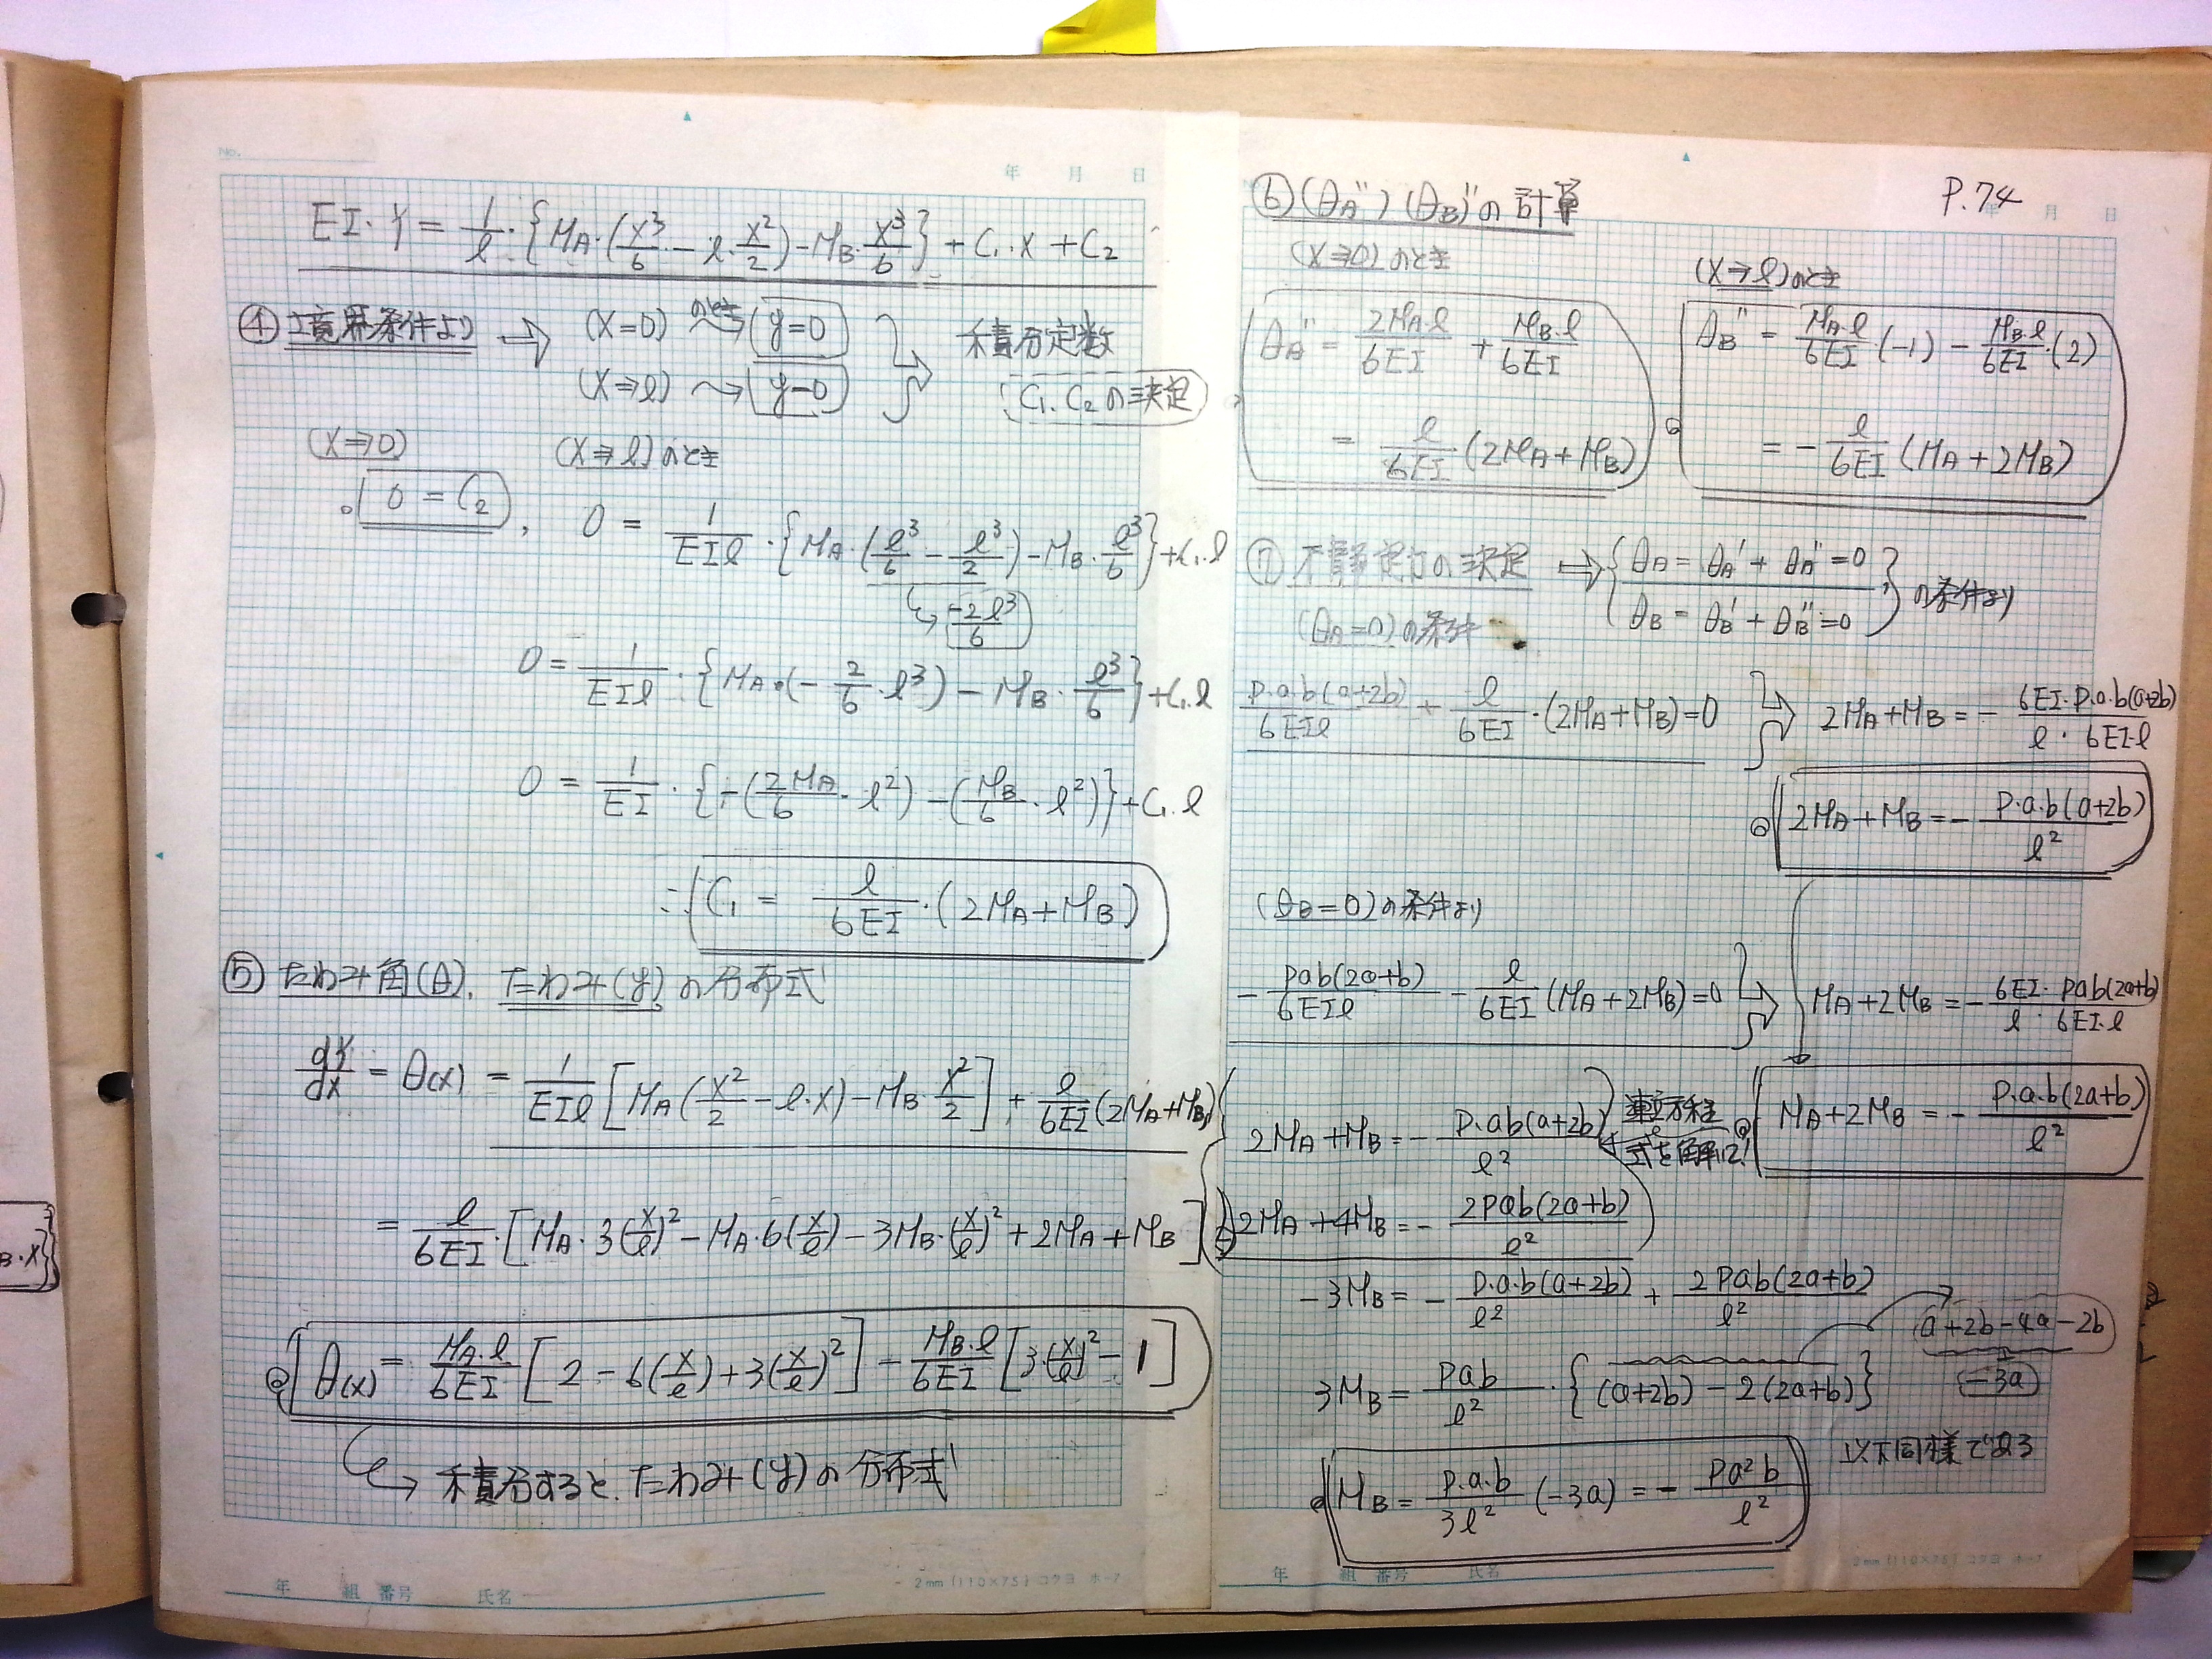 No.
年 月 日
EI・y = 1/l・{MA・(x³/6 − l・x²/2) − MB・x³/6} + C₁・x + C₂
④ 境界条件より ⇒ (x=0) のとき → (y=0)
(x⇒l) → (y=0)
積分定数
C₁. C₂の決定
(x⇒0) (x⇒l)のとき
0 = C₂ , 0 = 1/EIl・{MA・(l³/6 − l³/2) − MB・l³/6} + C₁・l
→ −2l³/6
0 = 1/EIl・{MA・(−2/6・l³) − MB・l³/6} + C₁・l
0 = 1/EI・{−(2MA/6・l²) − (MB/6・l²)} + C₁・l
∴ C₁ = l/6EI・(2MA+MB)
⑤ たわみ角(θ). たわみ(y)の分布式
dy/dx = θ(x) = 1/EIl [MA(x²/2 − l・x) − MB・x²/2] + l/6EI(2MA+MB)
= l/6EI・[MA・3(x/l)² − MA・6(x/l) − 3MB・(x/l)² + 2MA + MB]
θ(x) = MA・l/6EI [2 − 6(x/l) + 3(x/l)²] − MB・l/6EI [3・(x/l)² − 1]
→ 積分すると. たわみ(y)の分布式
年 組 番号 氏名
2mm (110×75) コクヨ ホ-7
P.74
年 月 日
⑥ (θA″) (θB)″の計算
(x⇒0)のとき
(x⇒l)のとき
θA″ = 2MA・l/6EI + MB・l/6EI
= l/6EI (2MA+MB)
θB″ = MA・l/6EI・(−1) − MB・l/6EI・(2)
= − l/6EI (MA+2MB)
⑦ 不静定力の決定 ⇒ {θA = θA′ + θA″ = 0
θB = θB′ + θB″ = 0} の条件より
(θA=0)の条件
P.a.b(a+2b)/6EIl + l/6EI・(2MA+MB)=0 → 2MA+MB = − 6EI・P.a.b(a+2b)/l・6EI・l
2MA+MB = − P.a.b(a+2b)/l²
(θB=0)の条件より
− Pab(2a+b)/6EIl − l/6EI (MA+2MB)=0 → MA+2MB = − 6EI・Pab(2a+b)/l・6EI・l
MA+2MB = − P.a.b(2a+b)/l²
2MA+MB = − P.ab(a+2b)/l²
連立方程
式を解いて!
−) 2MA+4MB = − 2Pab(2a+b)/l²
−3MB = − P.a.b(a+2b)/l² + 2Pab(2a+b)/l²
a+2b−4a−2b
(−3a)
3MB = Pab/l²・{(a+2b) − 2(2a+b)}
以下同様である
MB = P.a.b/3l² (−3a) = − Pa²b/l²
年 組 番号 氏名
2mm (110×75) コクヨ ホ-7
B・x}